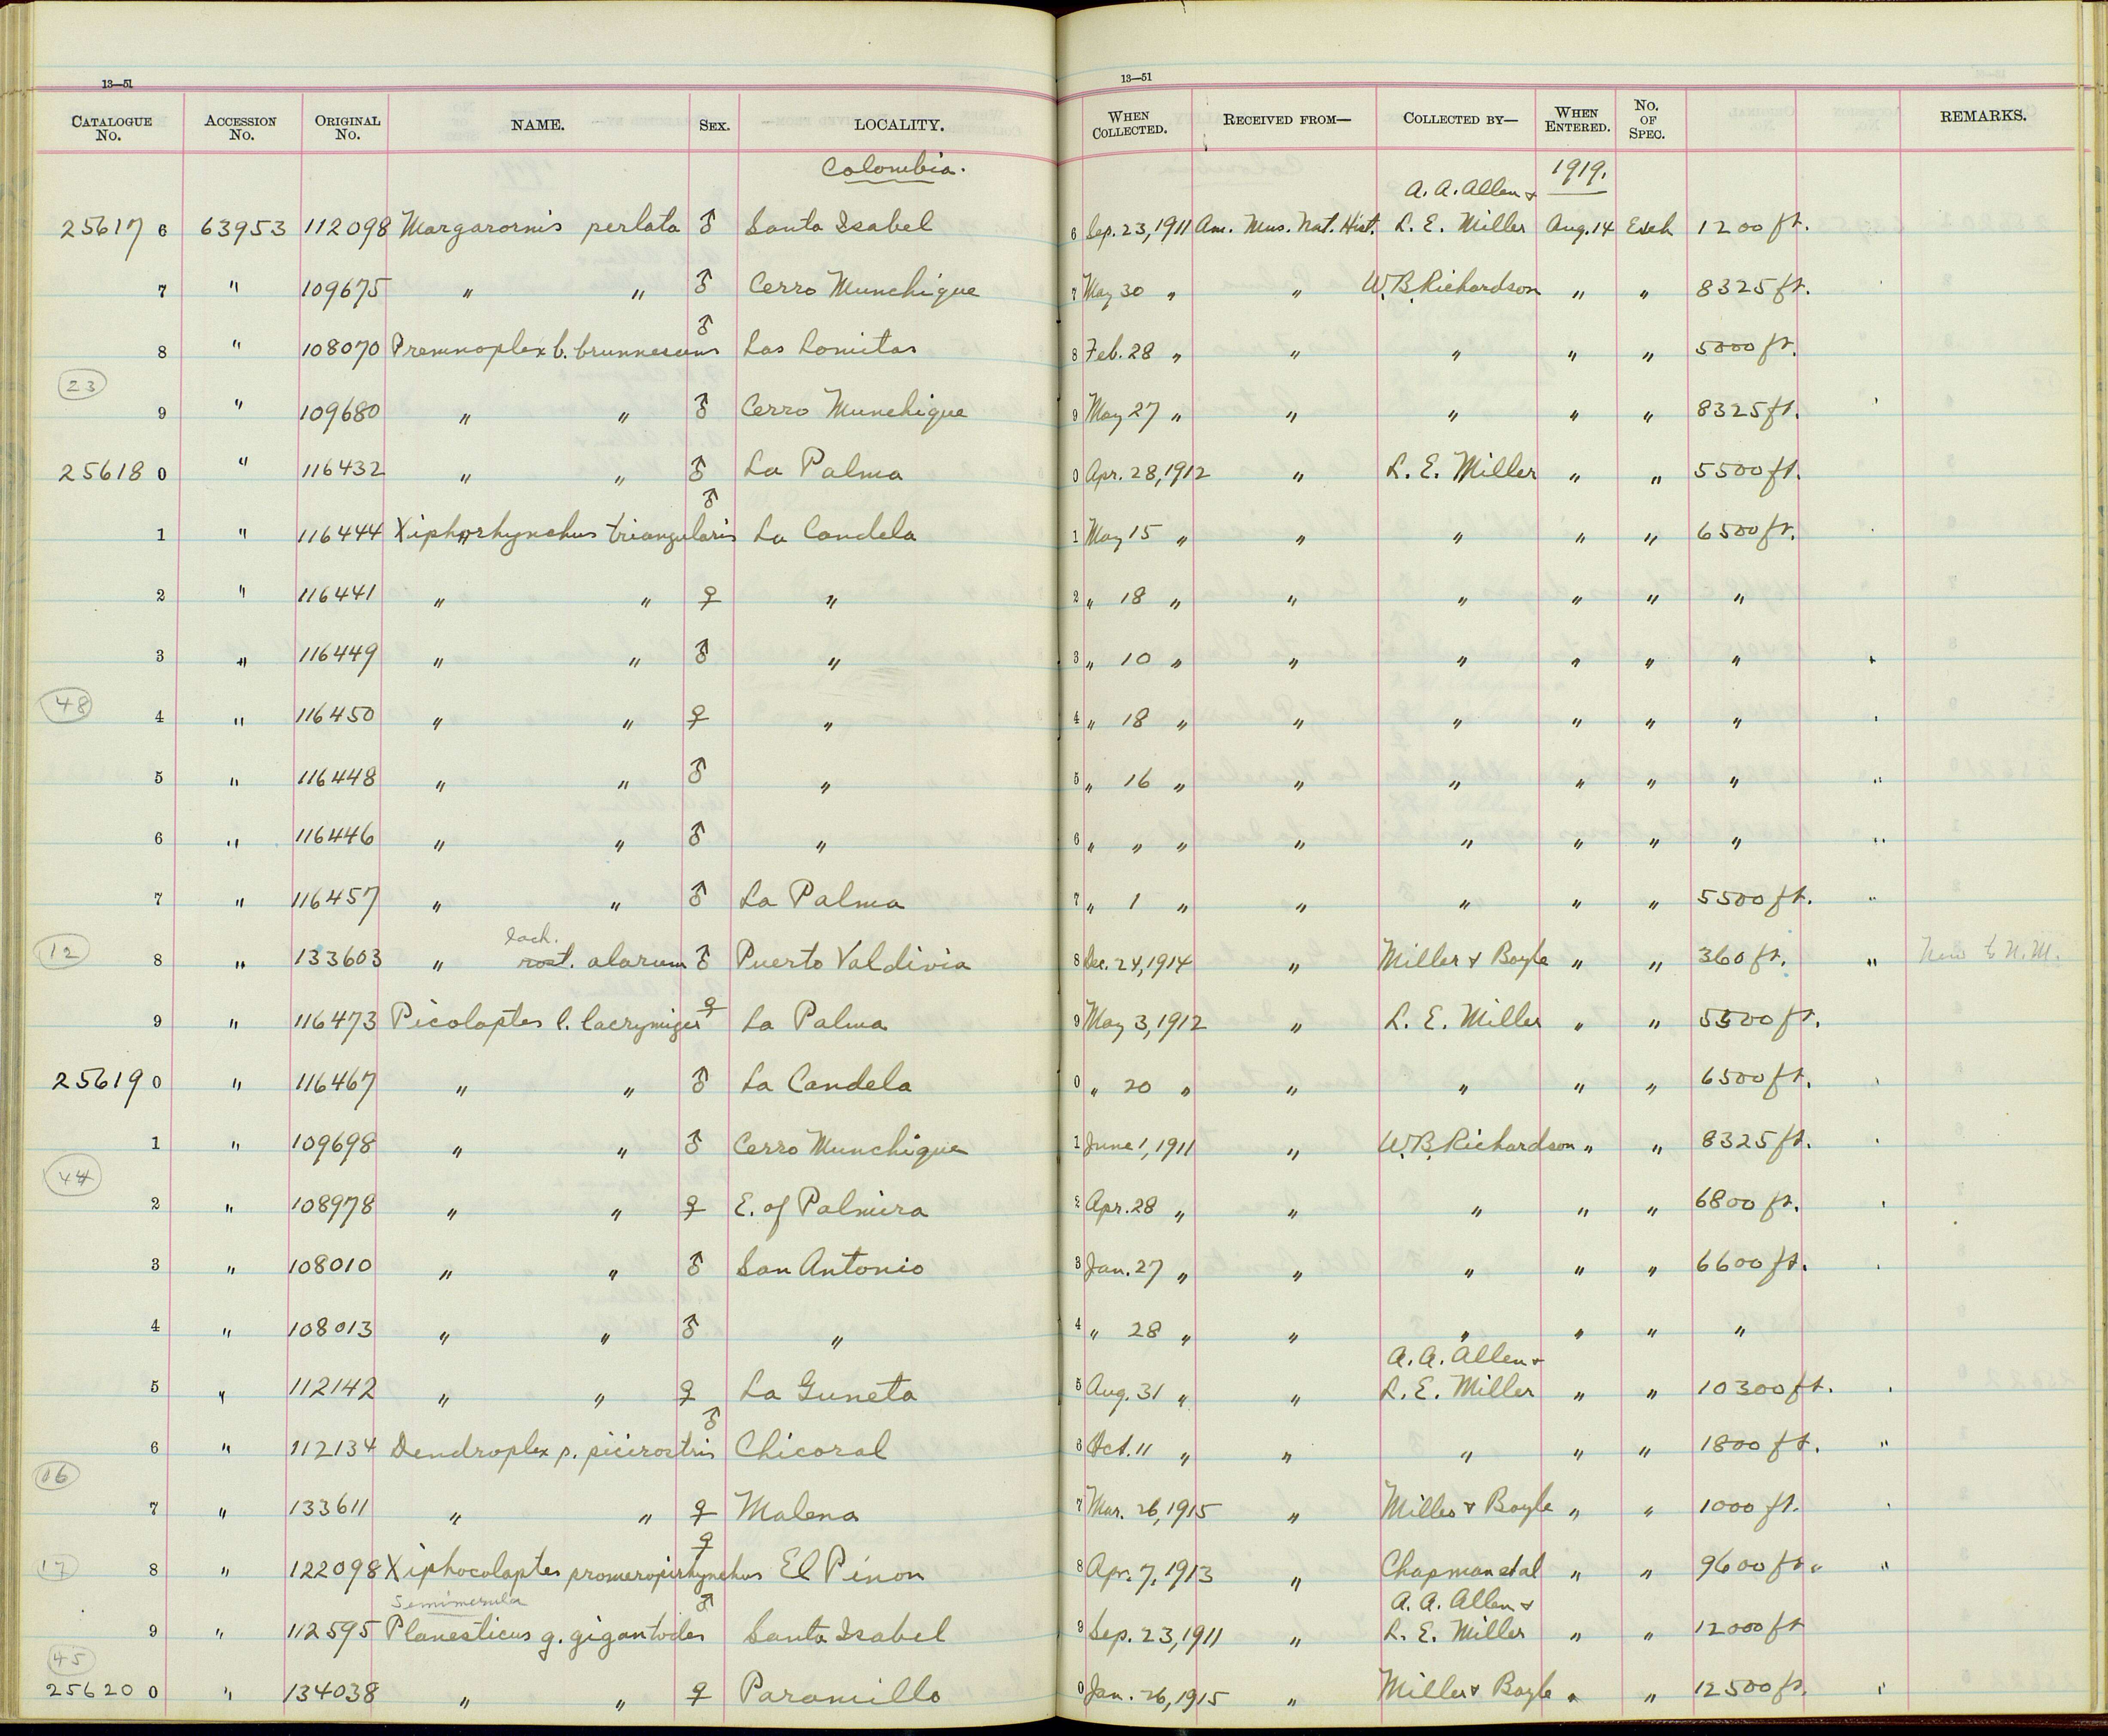 13—51
13—51
CATALOGUE No. ACCESSION No. ORIGINAL No. NAME. SEX. LOCALITY. WHEN COLLECTED. RECEIVED FROM— COLLECTED BY— WHEN ENTERED. No. OF SPEC. REMARKS.
Colombia. 1919.
A. A. Allen &
25617 6 63953 112098 Margarornis perlata ♂ Santa Isabel 6 Sep. 23, 1911 Am. Mus. Nat. Hist. L. E. Miller Aug. 14 Exch 1200 ft.
7 " 109675 " " ♂ Cerro Munchique 7 May 30 " " W. B. Richardson " " 8325 ft.
8 " 108070 Premnoplex b. brunnescens ♂ Las Lomitas 8 Feb. 28 " " " " " 5000 ft.
23
9 " 109680 " " ♂ Cerro Munchique 9 May 27 " " " " " 8325 ft.
25618 0 " 116432 " " ♂ La Palma 0 Apr. 28, 1912 " L. E. Miller " " 5500 ft.
1 " 116444 Xiphorhynchus triangularis ♂ La Candela 1 May 15 " " " " " 6500 ft.
2 " 116441 " " ♀ " 2 " 18 " " " " " "
3 " 116449 " " ♂ " 3 " 10 " " " " " "
48
4 " 116450 " " ♀ " 4 " 18 " " " " " "
5 " 116448 " " ♂ " 5 " 16 " " " " " " "
6 " 116446 " " ♂ " 6 " " " " " " " " "
7 " 116457 " " ♂ La Palma 7 " 1 " " " " " 5500 ft. "
lach.
12
8 " 133603 " rost. alarum ♂ Puerto Valdivia 8 Dec. 24, 1914 " Miller & Boyle " " 360 ft. " New to N.M.
9 " 116473 Picolaptes l. lacrymiger ♀ La Palma 9 May 3, 1912 " L. E. Miller " " 5500 ft.
25619 0 " 116467 " " ♂ La Candela 0 " 20 " " " " " 6500 ft.
1 " 109698 " " ♂ Cerro Munchique 1 June 1, 1911 " W. B. Richardson " " 8325 ft.
44
2 " 108978 " " ♀ E. of Palmira 2 Apr. 28 " " " " " 6800 ft.
3 " 108010 " " ♂ San Antonio 3 Jan. 27 " " " " " 6600 ft.
4 " 108013 " " ♂ " 4 " 28 " " " " " "
A. A. Allen &
5 " 112142 " " ♀ La Guneta 5 Aug. 31 " " L. E. Miller " " 10300 ft.
6 " 112134 Dendroplex p. picirostris ♂ Chicoral 6 Oct. 11 " " " " " 1800 ft. "
16
7 " 133611 " " ♀ Malena 7 Mar. 26, 1915 " Miller & Boyle " " 1000 ft.
17
8 " 122098 Xiphocolaptes promeropirhynchus ♀ El Pinon 8 Apr. 7, 1913 " Chapman et al " " 9600 ft. "
Semimerula A. A. Allen &
9 " 112595 Planesticus g. gigantodes ♂ Santa Isabel 9 Sep. 23, 1911 " L. E. Miller " " 12000 ft
45
25620 0 " 134038 " " ♀ Paramillo 0 Jan. 26, 1915 " Miller & Boyle " " 12500 ft.